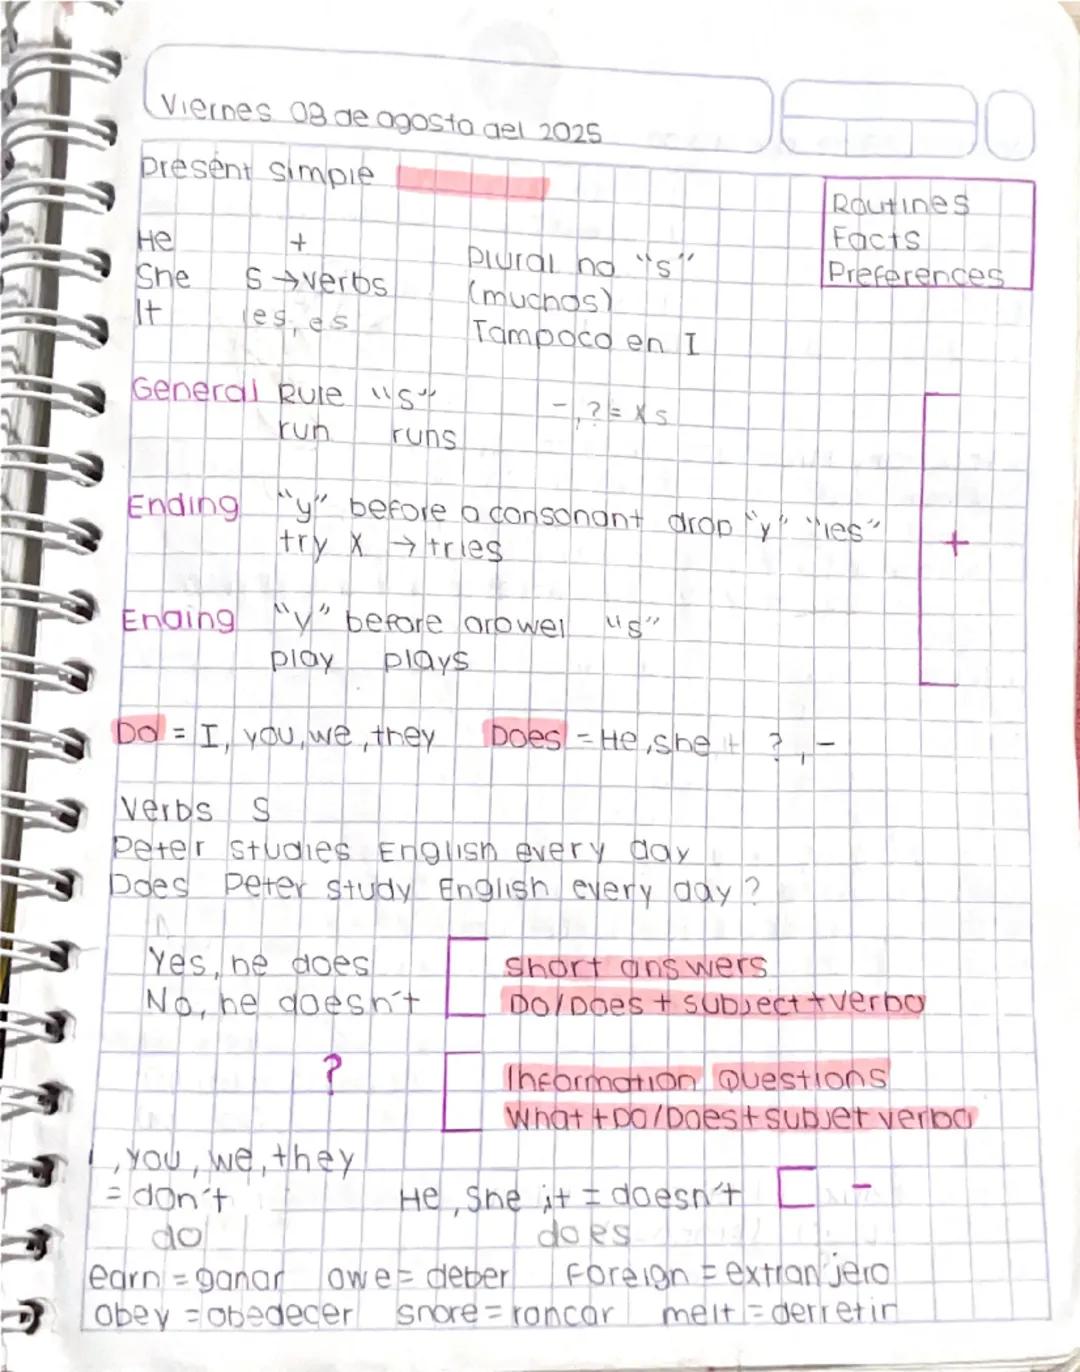 Viernes 08 de agosto del 2025
Present simple
Routines
Facts
Preferences
He +
She S → verbs
It ies, es
Plural no "s"
(muchos)
Tampoco en I
General Rule "s" -, ? = X s
run runs
Ending "y" before a consonant drop "y" "ies"
try X → tries
+
Ending "y" before a vowel "s"
play plays
Do = I, you, we, they Does = He, she + ?, -
Verbs S
Peter studies English every day
Does Peter study English every day?
Yes, he does
No, he doesn't
short answers
Do/Does + subject + verbo
?
Information Questions
What + Do/Does + subjet verbo
I, you, we, they
= don't He, She it = doesn't -
do does
earn = ganar owe = deber Foreign = extranjero
obey = obedecer snore = roncar melt = derretir